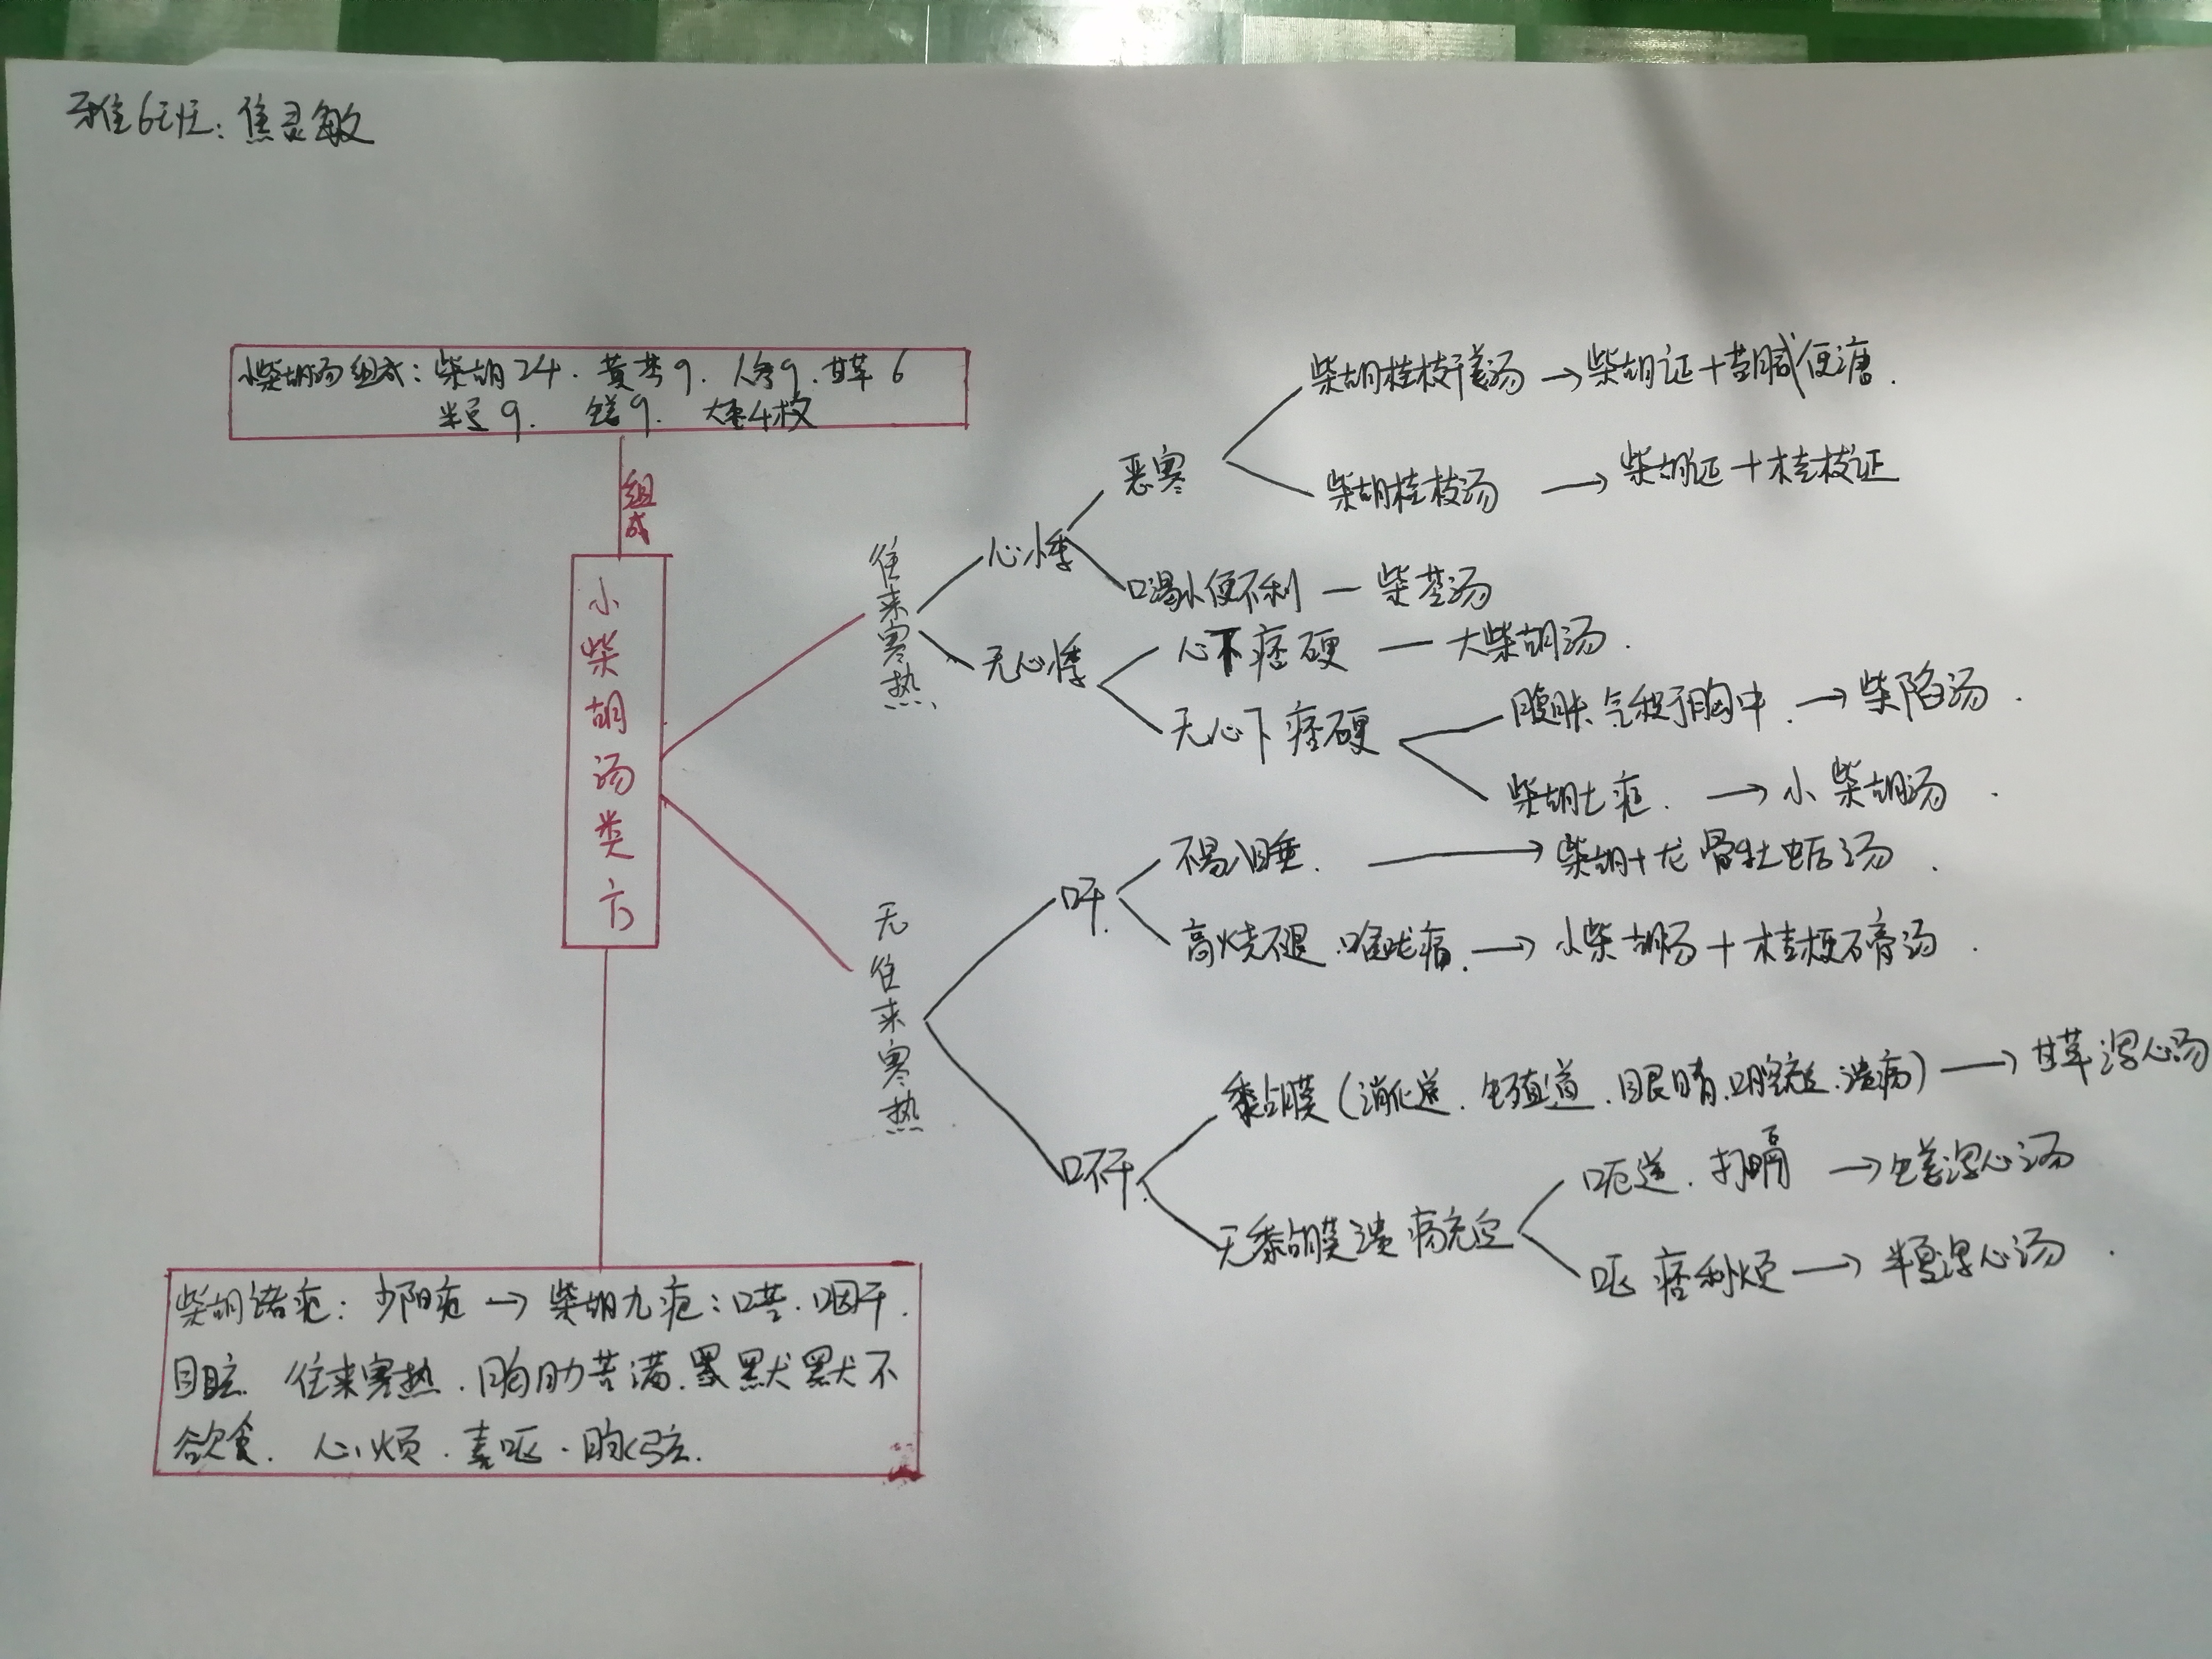 雅6班：焦灵敏
小柴胡汤组成：柴胡24．黄芩9．人参9．甘草6
半夏9．生姜9．大枣4枚
组成
小柴胡汤类方
往来寒热
心悸
恶寒
柴胡桂枝干姜汤→柴胡证+苦咸便溏．
柴胡桂枝汤→柴胡证+桂枝证
口渴小便不利—柴苓汤
无心悸
心下痞硬—大柴胡汤．
无心下痞硬
腹胀气积于胸中．→柴陷汤．
柴胡七症．→小柴胡汤．
无往来寒热
口干．
不易入睡．→柴胡+龙骨牡蛎汤．
高烧不退．喉咙痛．→小柴胡汤+桔梗石膏汤．
口不干．
黏膜（消化道．生殖道．眼睛．口腔充血．溃疡）→甘草泻心汤
无黏膜溃疡充血
呃逆．打嗝→生姜泻心汤
呕痞利烦→半夏泻心汤．
柴胡诸症：少阳症→柴胡九症：口苦．咽干．
目眩．往来寒热．胸肋苦满．默默不
欲食．心烦．喜呕．脉弦．